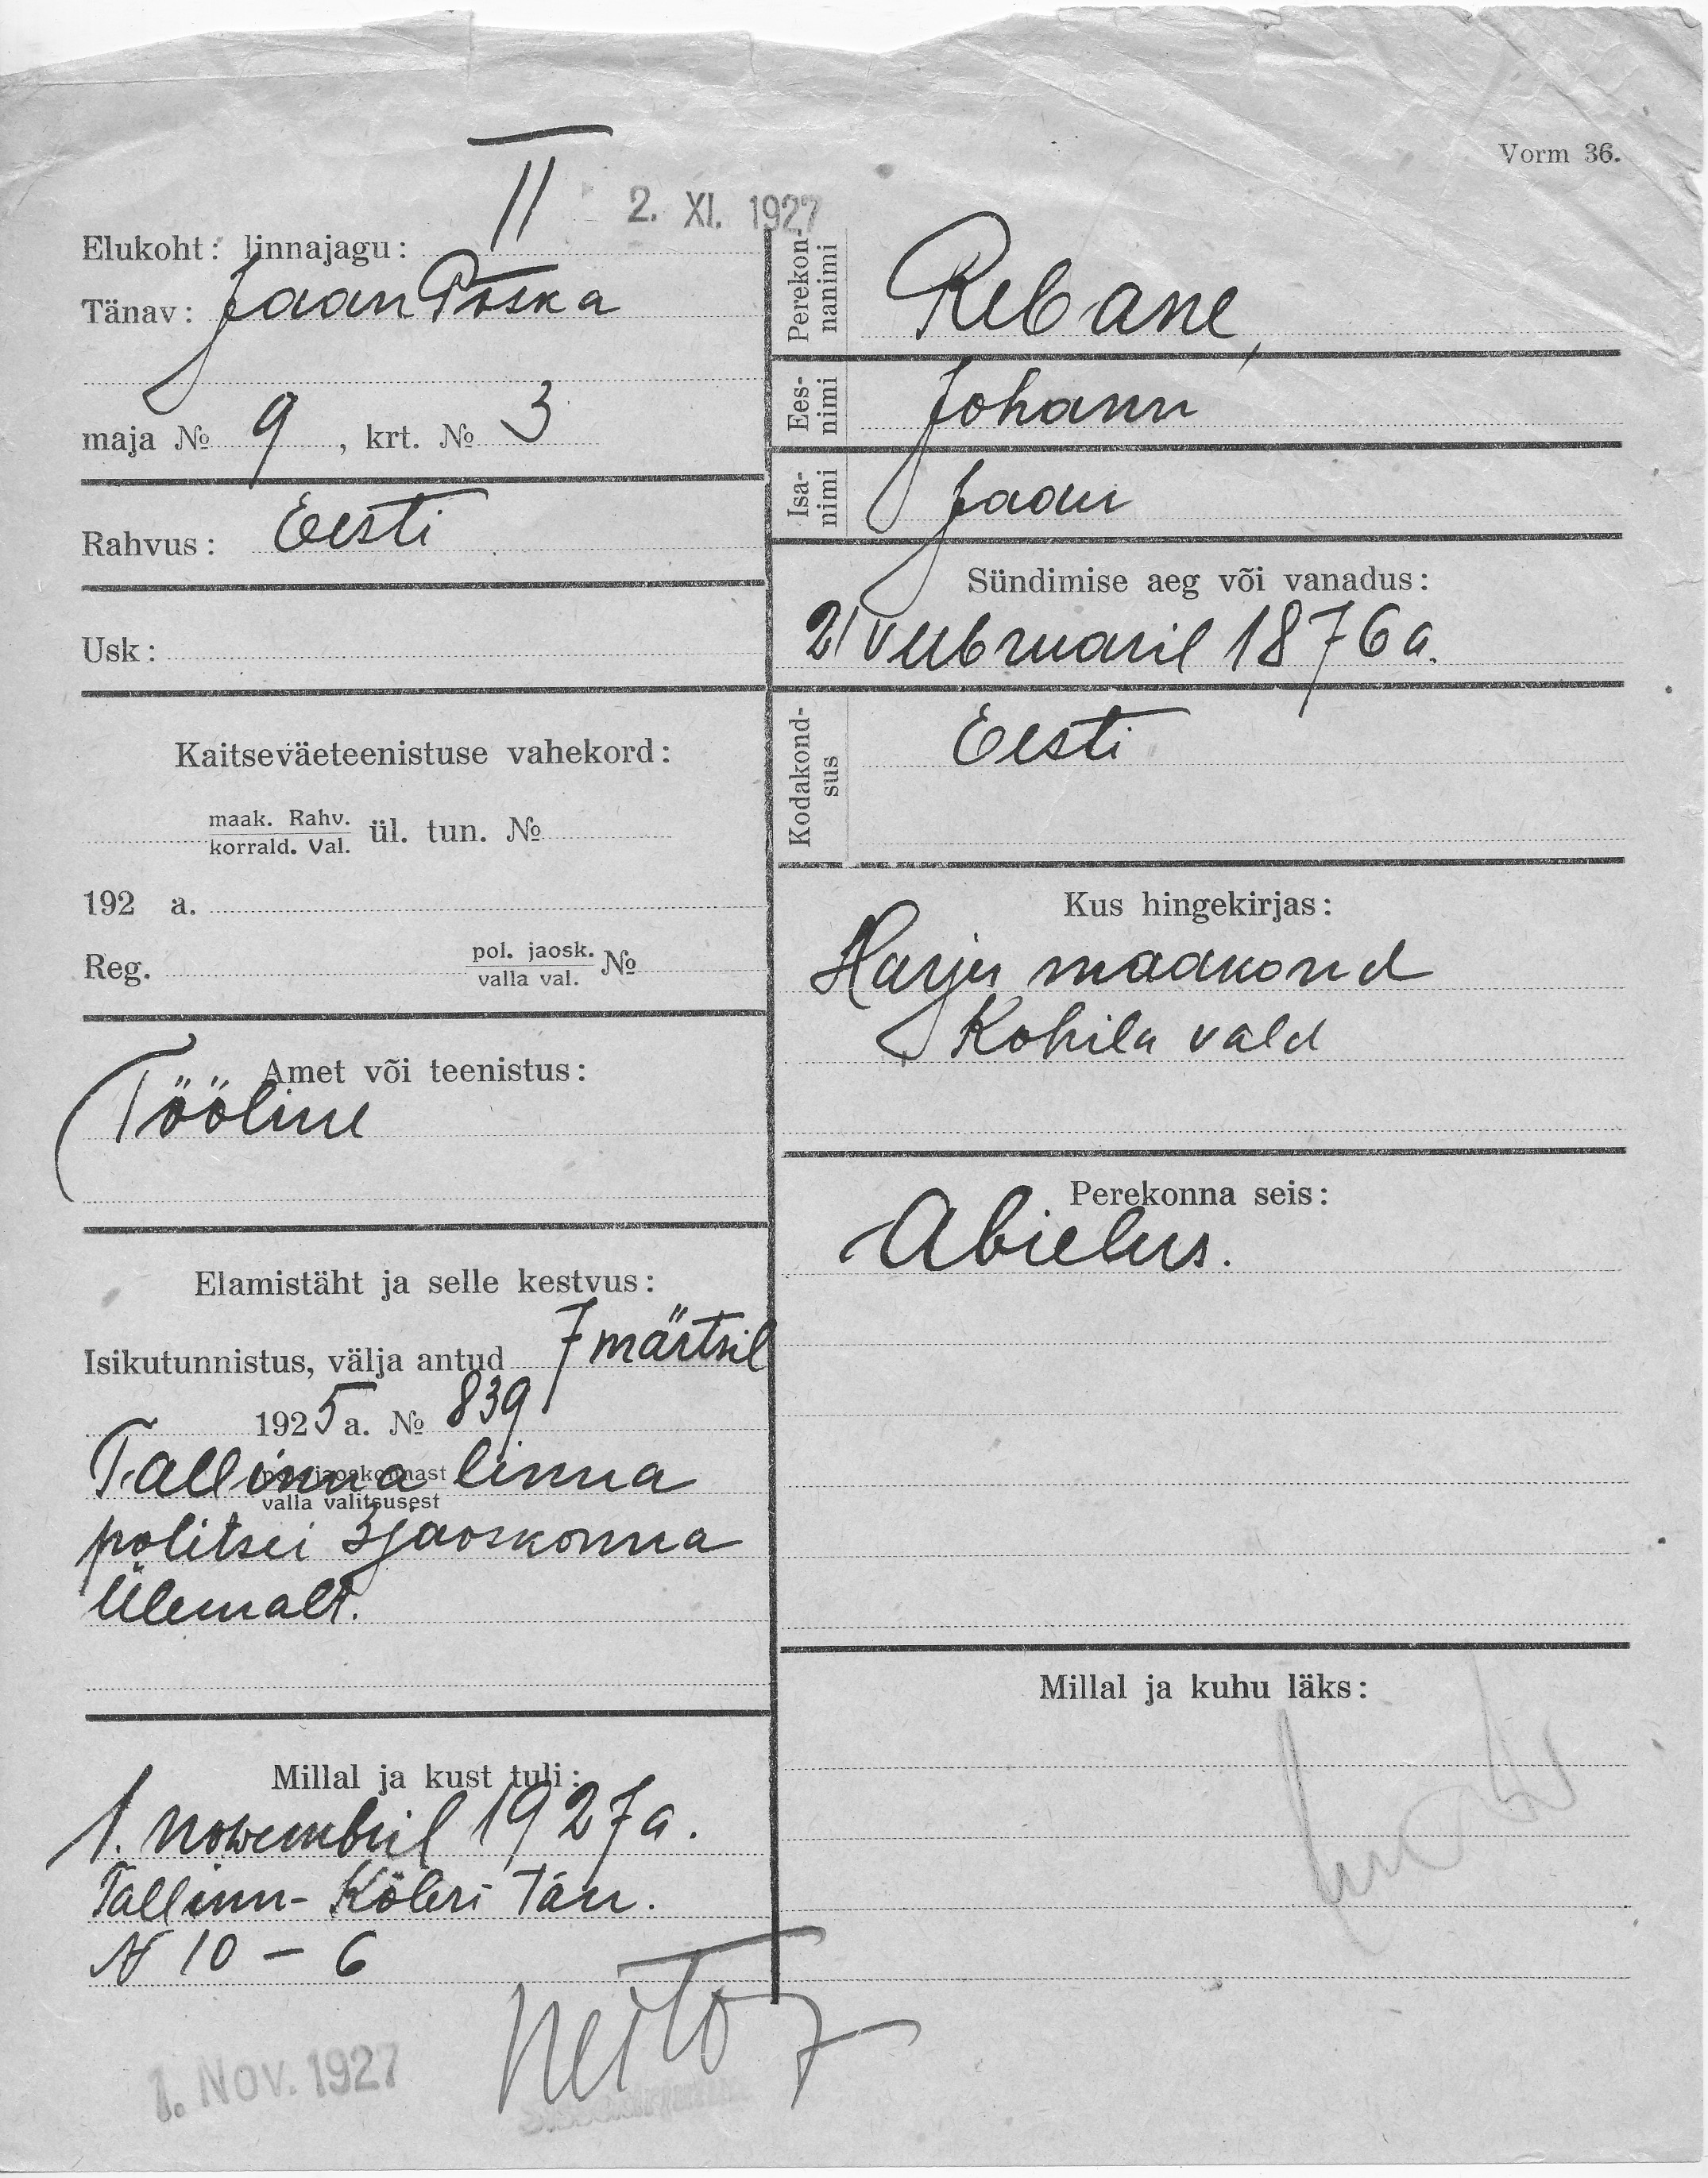 Vorm 36.
2. XI. 1927
Elukoht: linnajagu: II
Tänav: Jaan Poska
maja № 9, krt. № 3
Rahvus: Eesti
Usk:
Kaitseväeteenistuse vahekord:
maak. Rahv.
korrald. Val. ül. tun. №
192 a.
Reg. pol. jaosk.
valla val. №
Amet või teenistus:
Tööline
Elamistäht ja selle kestvus:
Isikutunnistus, välja antud 7 märtsil
1925 a. № 839
pol. jaoskonnast
Tallinna linna
valla valitsusest
politsei 3 jaoskonna
Ülemalt.
Millal ja kust tuli:
1. nowembril 1927 a.
Tallinn- Köleri Tän.
N 10 – 6
1. NOV. 1927
Perekon-
nanimi
Rebane,
Ees-
nimi
Johann
Isa-
nimi
Jaan
Sündimise aeg või vanadus:
21 veebruaril 1876 a.
Kodakond-
sus
Eesti
Kus hingekirjas:
Harju maakond
Kohila vald
Perekonna seis:
Abielus.
Millal ja kuhu läks: